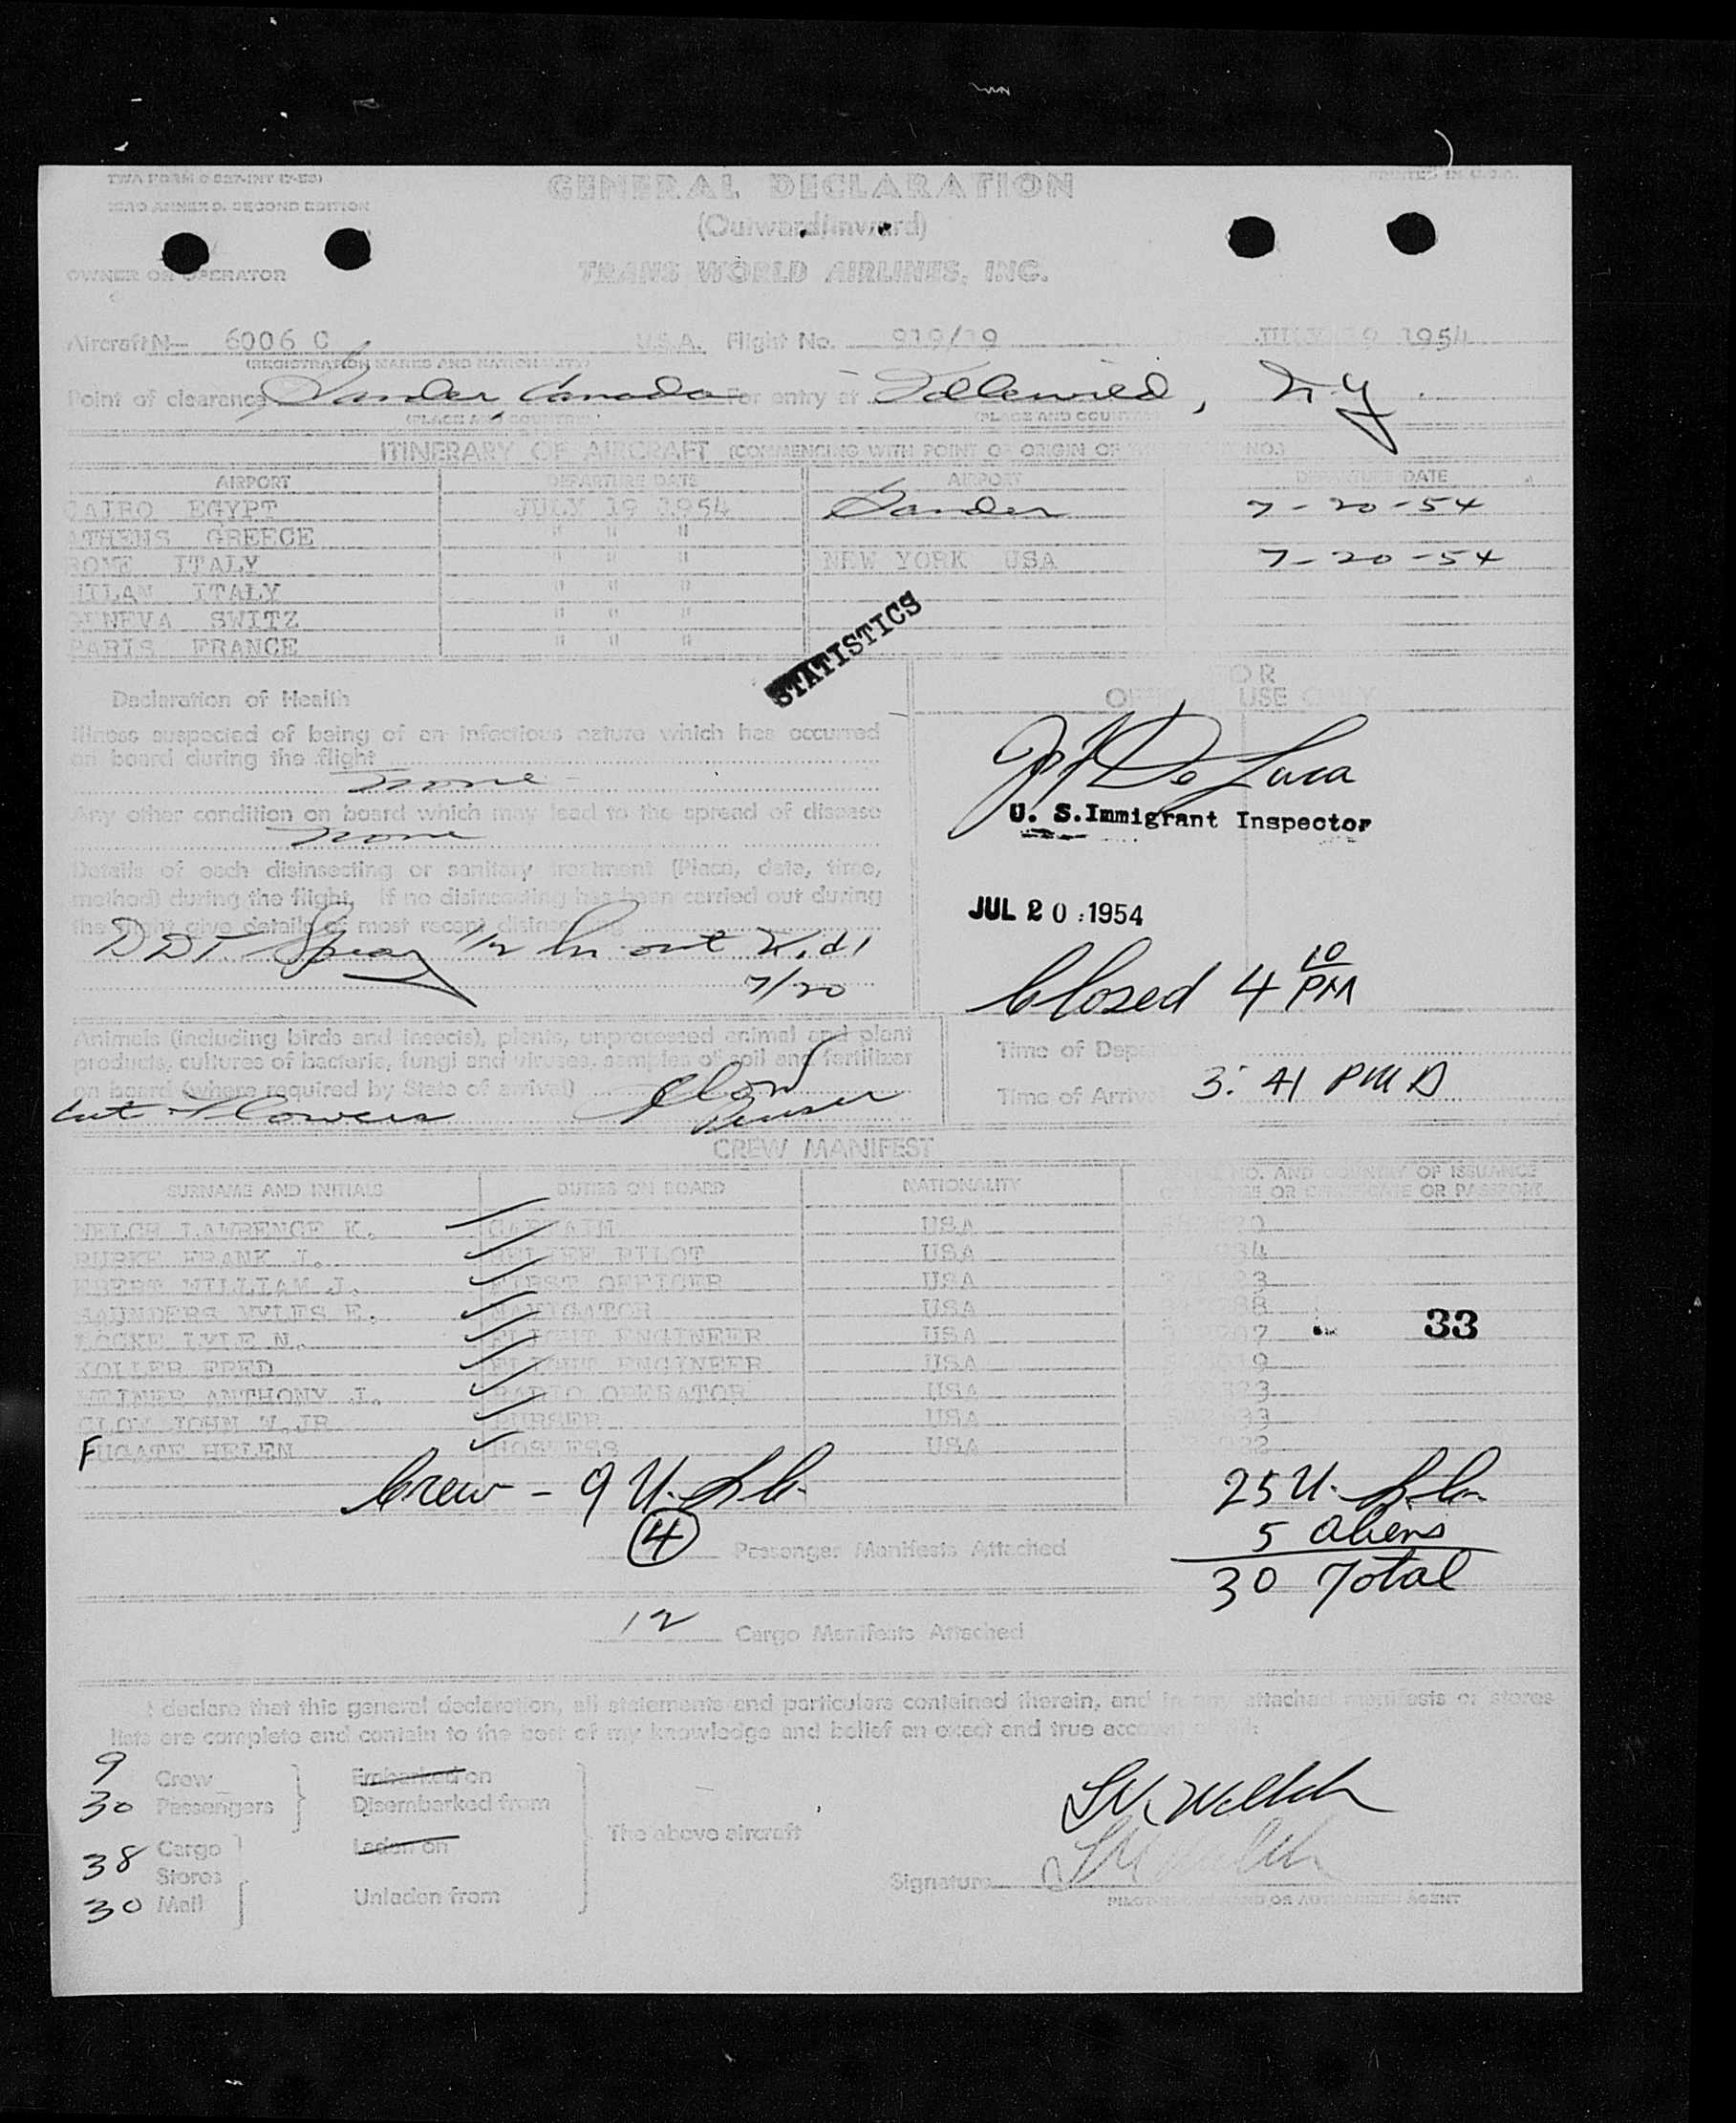 TWA FORM O 227-INT (7-53)
ICAO ANNEX 9, SECOND EDITION
PRINTED IN U.S.A.
GENERAL DECLARATION
(Outward/Inward)
OWNER OR OPERATOR
TRANS WORLD AIRLINES, INC.
Aircraft N— 6006 C U.S.A. Flight No. 919/19 JULY 19 1954
(REGISTRATION MARKS AND NATIONALITY)
Point of clearance Gander, Canada For entry at Idlewild, NY
(PLACE AND COUNTRY) (PLACE AND COUNTRY)
ITINERARY OF AIRCRAFT (COMMENCING WITH POINT OF ORIGIN OF NO.)
AIRPORT DEPARTURE DATE AIRPORT DEPARTURE DATE
CAIRO EGYPT JULY 19 1954 Gander 7-20-54
ATHENS GREECE " " "
ROME ITALY " " " NEW YORK USA 7-20-54
MILAN ITALY " " "
GENEVA SWITZ " " "
PARIS FRANCE " " "
STATISTICS
FOR
OFFICIAL USE ONLY
Declaration of Health
Illness suspected of being of an infectious nature which has occurred
on board during the flight
None
Any other condition on board which may lead to the spread of disease
None
Details of each disinsecting or sanitary treatment (Place, date, time,
method) during the flight. If no disinsecting has been carried out during
the flight give details of most recent disinsecting
DDT Spray 1/2 hr out
7/20
J De Luca
U. S. Immigrant Inspector
JUL 20 1954
Closed 4 10 PM
Animals (including birds and insects), plants, unprocessed animal and plant
products, cultures of bacteria, fungi and viruses, samples of soil and fertilizer
on board (where required by State of arrival)
Cut Flowers Glow
Purser
Time of Departure
Time of Arrival 3:41 PM D
CREW MANIFEST
SURNAME AND INITIALS DUTIES ON BOARD NATIONALITY NO. AND COUNTRY OF ISSUANCE
OR CERTIFICATE OR PASSPORT
WELCH LAWRENCE K. CAPTAIN USA
BURKE FRANK J. RELIEF PILOT USA
EBERT WILLIAM J. FIRST OFFICER USA
SAUNDERS MYLES E. NAVIGATOR USA
LOCKE LYLE N. FLIGHT ENGINEER USA
33
KOLLER FRED FLIGHT ENGINEER USA
WEINER ANTHONY J. RADIO OPERATOR USA
GLOW JOHN W. JR PURSER USA
FUGATE HELEN HOSTESS USA
Crew - 9 U.S.C.
25 U.S.C.
5 aliens
30 Total
4 Passenger Manifests Attached
12 Cargo Manifests Attached
I declare that this general declaration, all statements and particulars contained therein, and in any attached manifests or stores
lists are complete and contain to the best of my knowledge and belief an exact and true account
9 Crew
30 Passengers
Embarked on
Disembarked from
38 Cargo
Stores
30 Mail
Laden on
Unladen from
The above aircraft
LK Welch
Signature LK Welch
PILOT-IN-COMMAND OR AUTHORIZED AGENT